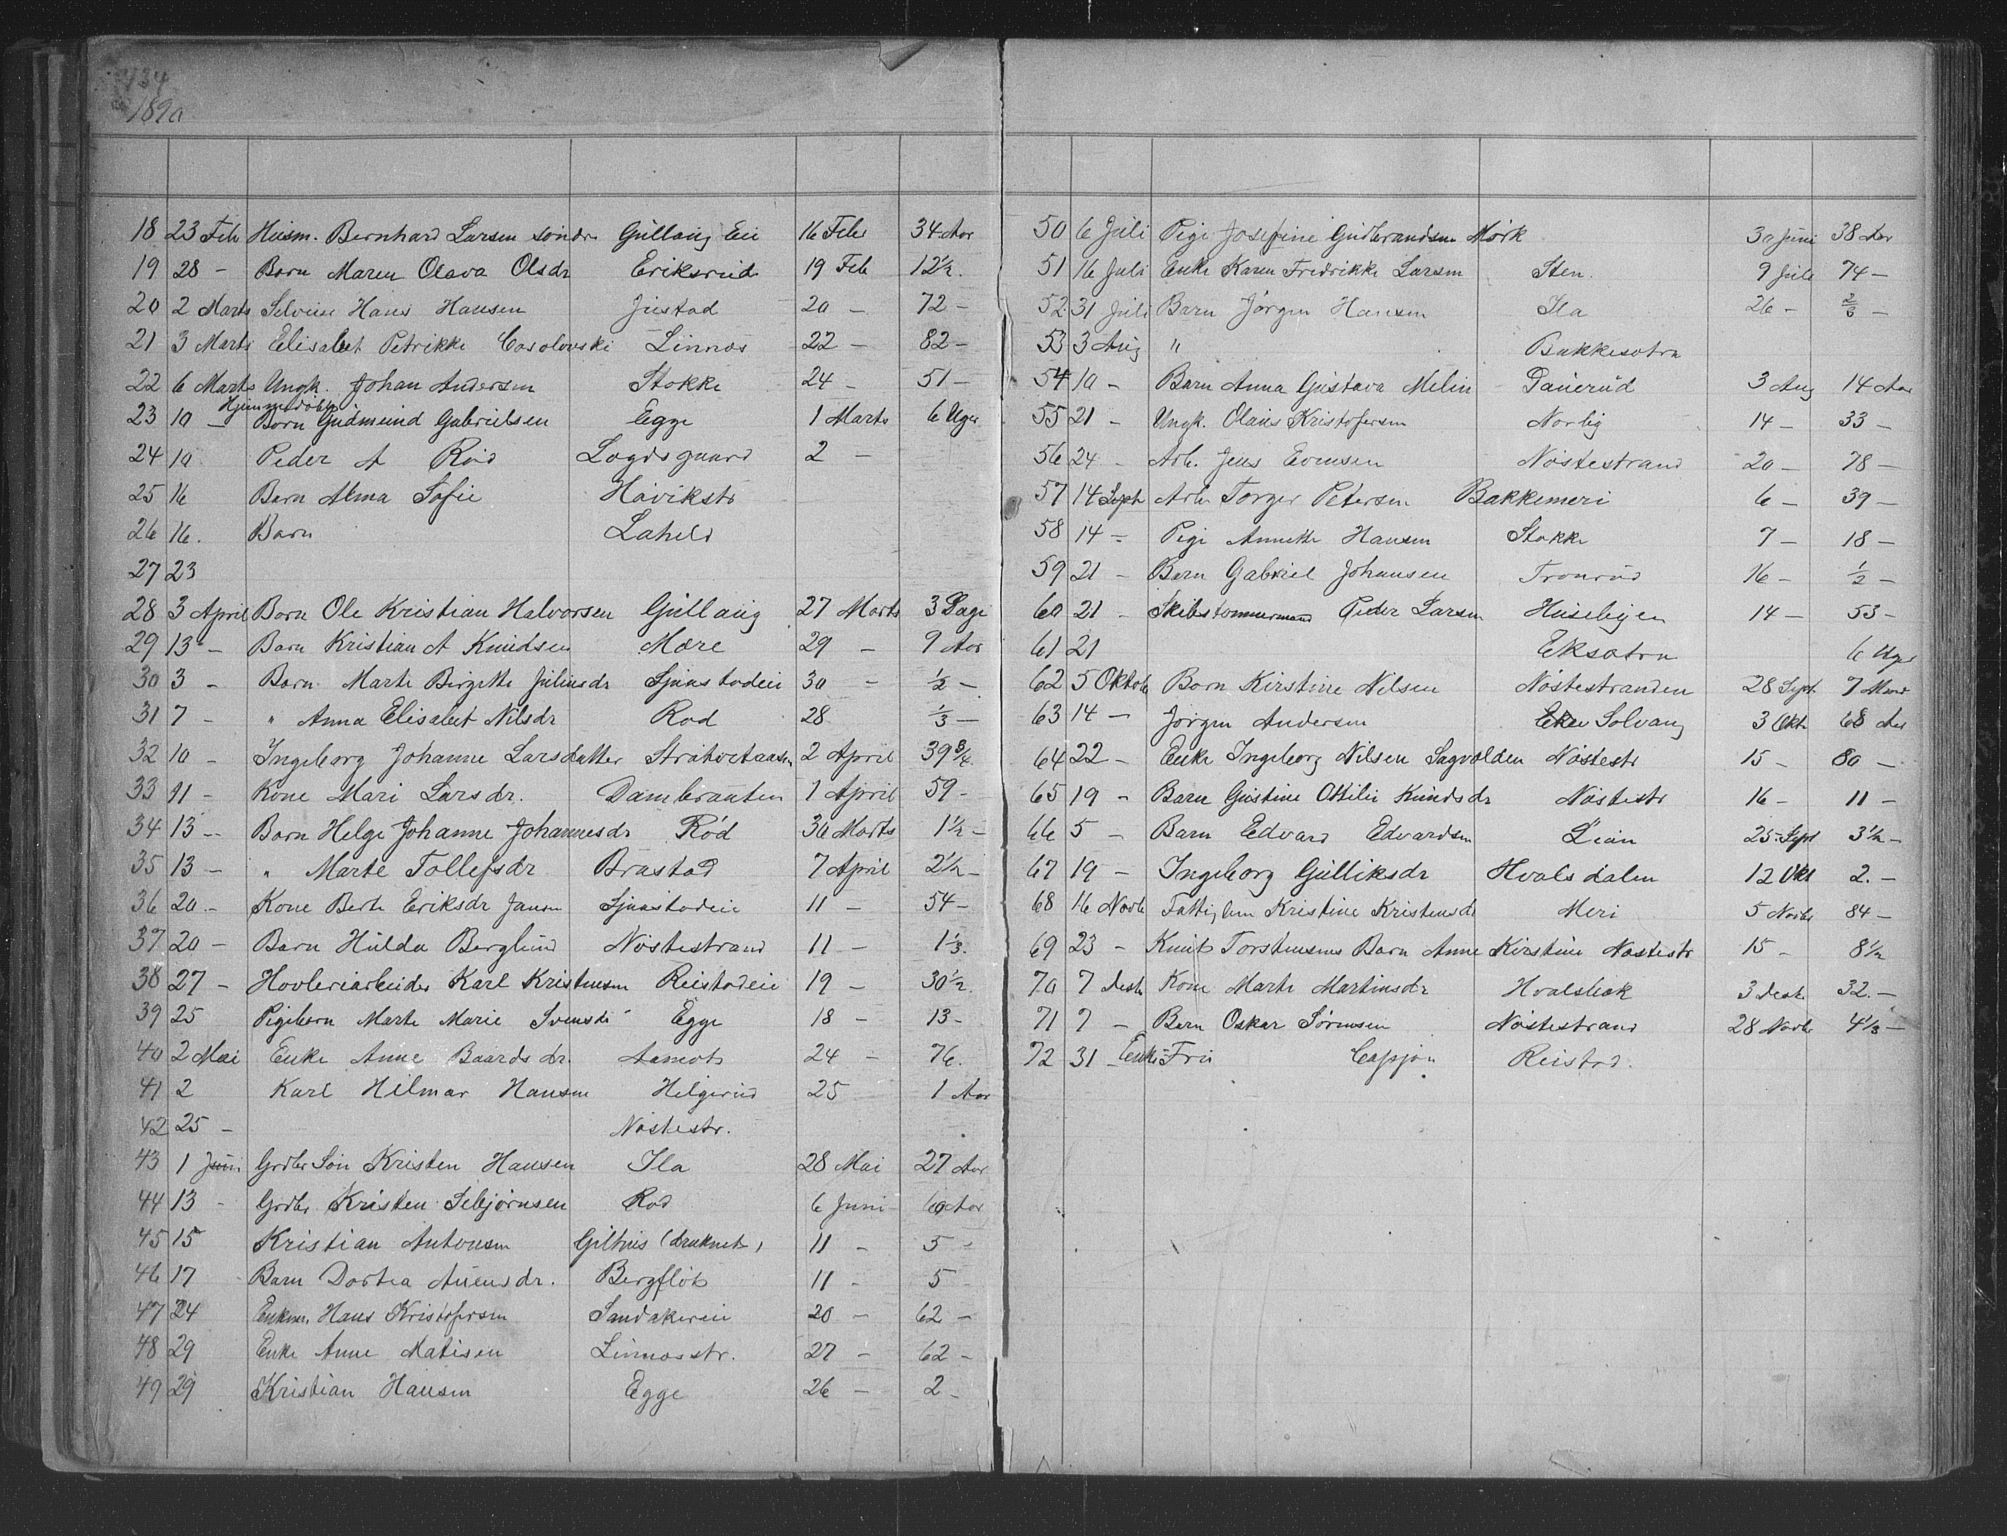 134
1890
18 23 Feb Husm. Bernhard Larsen søndre Gullaug Eie 16 Feb 34 Aar
19 28 - Barn Maren Olava Olsdr Eriksrud 19 Feb 12½.
20 2 Marts Selveier Hans Hansen Justad 20 - 72 -
21 3 Marts Elisabet Petrikke Cosolowski Linnæs 22 - 82 -
22 6 Marts Ungk. Johan Andersen Stokke 24 - 51 -
23 10 - Hjemmedøbt Barn Gudmund Gabrielsen Egge 1 Marts 6 Uger
24 10 Peder A Rød Logdsgaard 2 -
25 16 Barn Alma Sofie Høvikstr
26 16. Barn Lahell
27 23
28 3 April Barn Ole Kristian Halvorsen Gullaug 27 Marts 3 Dage
29 13 - Barn Kristian A Knudsen Mære 29 - 9 Aar
30 3 - Barn Marte Birgitte Juliusdr Sjaastadeie 30 - ½ -
31 7 - " Anna Elisabet Nilsdr Rød 28 ⅓ -
32 10 - Ingeborg Johanne Larsdatter 2 April 39¾
33 11 - Kone Mari Larsdr. Dambraaten 1 April 59 -
34 13 - Barn Helge Johanne Johannesdr Rød 30 Marts 1½ -
35 13 - " Marte Tollefsdr Brastad 7 April 2½ -
36 20 - Kone Berte Eriksdr Jansen Sjaastadeie 11 - 54 -
37 20 - Barn Hulda Berglund Nøstestrand 11 - 1⅓.
38 27 - Høvleriarbeider Karl Kristensen Reistadeie 19 - 30½.
39 25 Pigebarn Marte Marie Svensdr Egge 18 - 13 -
40 2 Mai Enke Anne Baardsdr. Aamot 24 - 76.
41 2 Karl Hilmar Hansen Helgerud 25 1 Aar
42 25 - Nøstestr.
43 1 Juni Grdbr Søn Kristen Hansen Ila 28 Mai 27 Aar
44 13 - Grdbr Kristen Sebjørnsen Rød 6 Juni 60 Aar
45 15 Kristian Antonsen Gilhus (druknet) 11 - 5 -
46 17 Barn Dortea Auensdr. Bergflot 11 - 5 -
47 24 Enkem. Hans Kristofersen Sandakereie 20 - 62 -
48 29 Enke Anne Matisen Linnæsstr. 27 - 62 -
49 29 Kristian Hansen Egge 26 - 2 -
50 6 Juli Pige Josefine Gudbrandsen Mørk 30 Juni 38 Aar
51 16 Juli Enke Karen Fredrikke Larsen Sten. 9 Juli 74 -
52 31 Juli Barn Jørgen Hansen Ila 26 - ⅔ -
53 3 Aug " Bakkesætra
54 10 - Barn Anna Gustava Melin Pauerud 3 Aug 14 Aar
55 21 - Ungk. Olaus Kristofersen Norlig 14 - 33 -
56 24 - Arb. Jens Evensen Nøstestrand 20 - 78 -
57 14 Sept Arb Torger Petersen Bakkemeri 6 - 39 -
58 14 - Pige Annette Hansen Stokke 7 - 18 -
59 21 - Barn Gabriel Johansen Tronrud 16 - ½ -
60 21 - Skibstømmermand Peder Larsen Husebyen 14 - 53 -
61 21 Eksætra 6 Uger
62 5 Oktob Barn Kirstine Nilsen Nøstestranden 28 Sept 7 Mand
63 14 - Jørgen Andersen Solvang 3 Okt 68 Aar
64 22 - Enke Ingeborg Nilsen Sagvolden Nøstestr 15 - 80 -
65 19 - Barn Gustine Ottilie Knudsdr Nøstestr 16 - 11 -
66 5 - Barn Edvard Edvardsen Lian 25 Sept 3½ -
67 19 - Ingeborg Gulliksdr Hvalsdalen 12 Okt 2. -
68 16 Novb Fattiglem Kristine Kristensdr Meri 5 Novb 84 -
69 23 - Knut Torstensens Barn Anne Kirstine Nøstestr 15 - 8½
70 7 Desb Kone Marte Martinsdr Hvalsbak 3 Desb. 32. -
71 7 - Barn Oskar Sørensen Nøstestrand 28 Novb 4⅓ -
72 31 - Enke Fru Cappjøn Reistad.